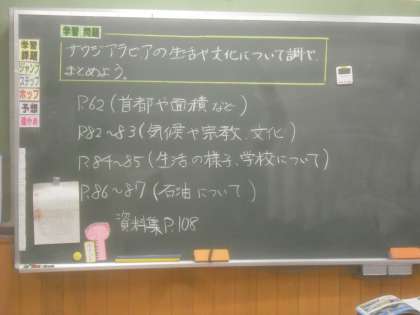 学習問題
サウジアラビアの生活や文化について調べ、
まとめよう。
P.62(首都や面積など)
P.82~83(気候や宗教、文化)
P.84~85(生活の様子、学校について)
P.86~87(石油について)
資料集P.108
学習
課題
ジャンプ
ステップ
ホップ
予想